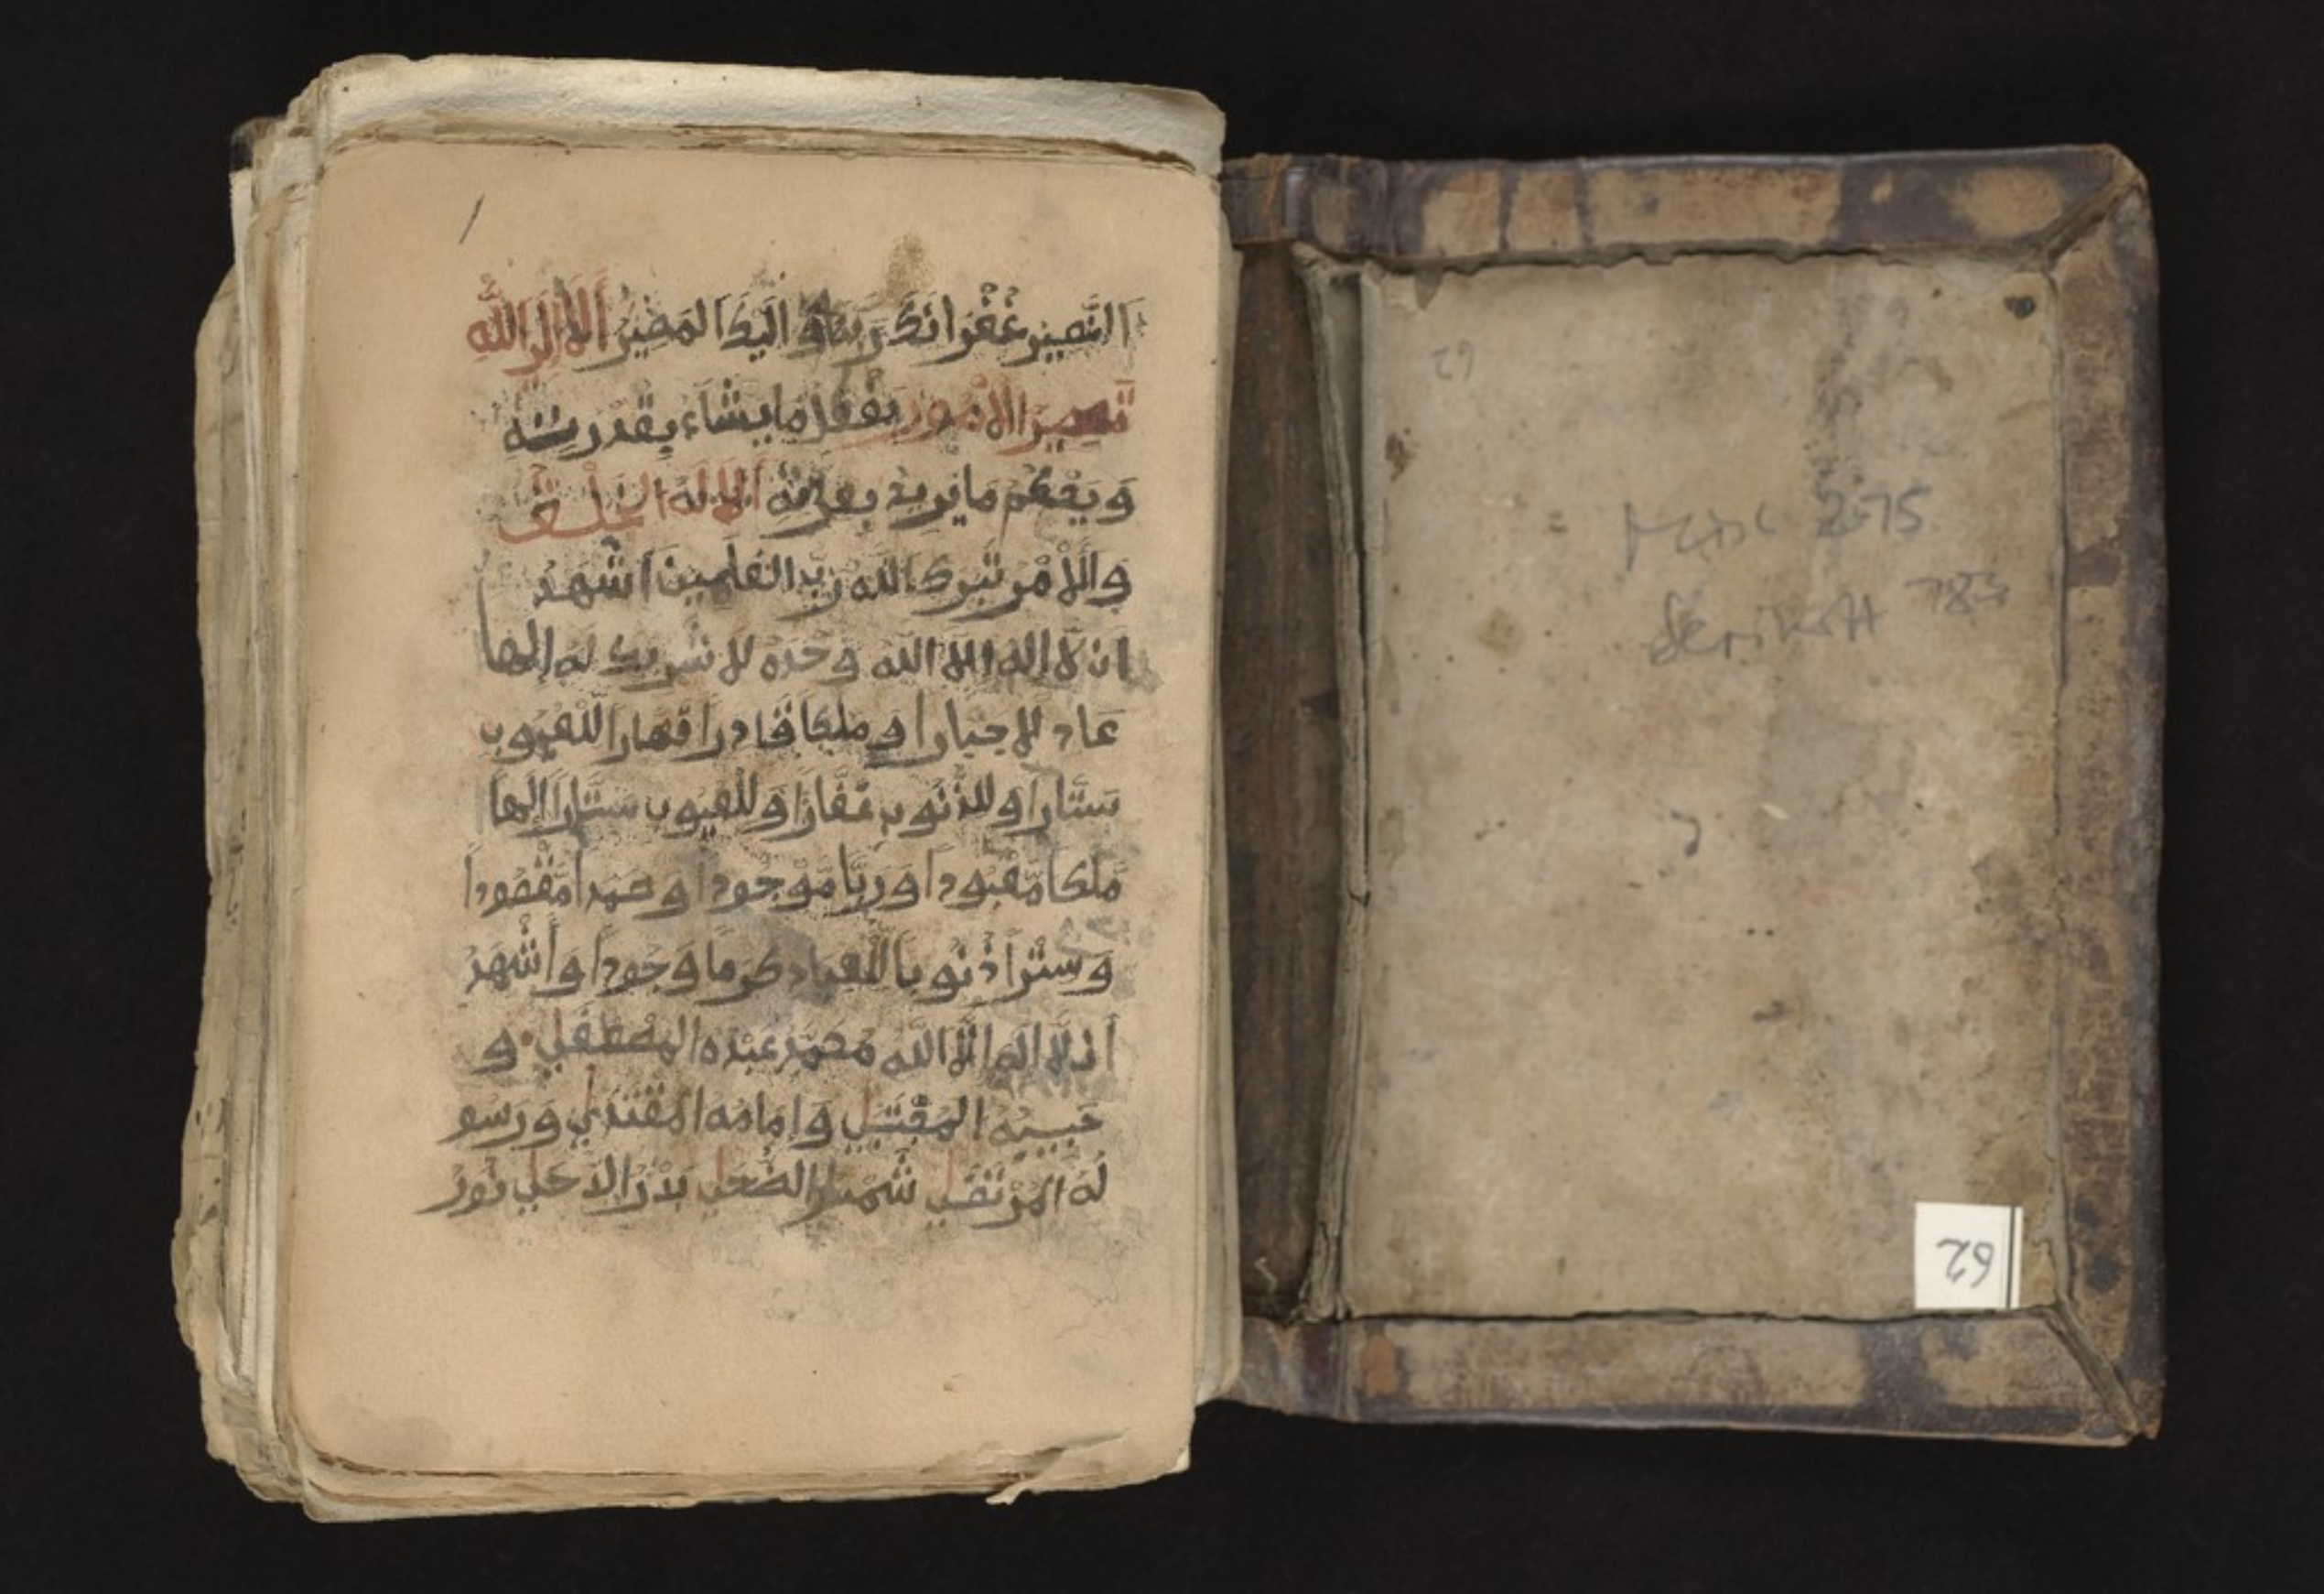 النصير غفرانك ربنا و اليك المصير ألا إلى الله
تصير الأمور يفعل ما يشاء بقدرته
وَيحكم ما يريد بعزته ألا له الخلق
والأمر تبرك الله ربّ العلمين اشهد
ان لا اله الا الله وحده لا شريك له إلها
عادلا جبارا و ملكا قادرا قهارا للعيوب
ستارا و للذنوب غفارا و للعيوب ستارا الها
ملكا معبودا و ربّا موجودا و صمدا مقصودا
و سترا ذنوبا للعباد كرما و جودا و أشهد
أن لا اله الا الله محمد عبده المصطفى و
حبيبه المقتبل و إمامه المقتدى و رسو
له المرتضى شمس الضحى بدر الدجى نور
1
62
Misc 275
783
62